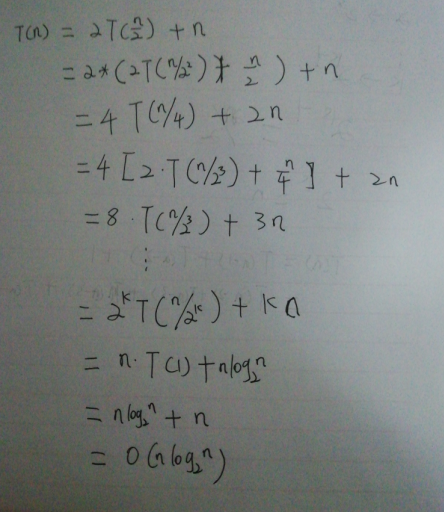 T(n) = 2T(n/2) + n
= 2*(2T(n/2²) + n/2) + n
= 4 T(n/4) + 2n
= 4 [2·T(n/2³) + n/4] + 2n
= 8 · T(n/2³) + 3n
⋮
= 2ᵏT(n/2ᵏ) + kn
= n·T(1) + nlog₂ⁿ
= nlog₂ⁿ + n
= O(nlog₂ⁿ)